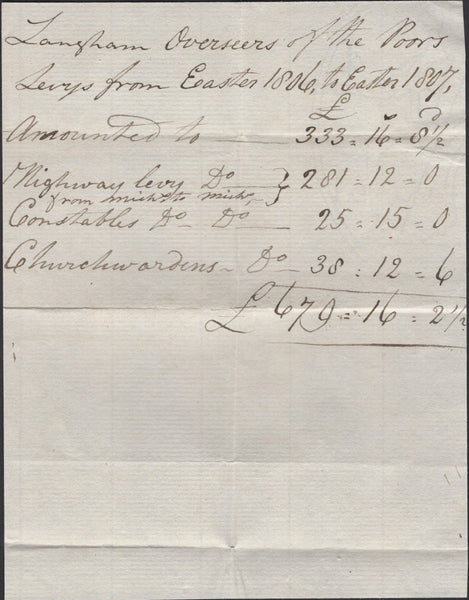 Langham Overseers of the Poors
Levys from Easter 1806, to Easter 1807,
£ s D
Amounted to — 333 = 16 = 8 1/2
Highway levy Do } 281 = 12 = 0
from Michs to Michs
Constables Do — Do — 25 = 15 = 0
Churchwardens — Do — 38 : 12 = 6
£ 679 = 16 = 2 1/2